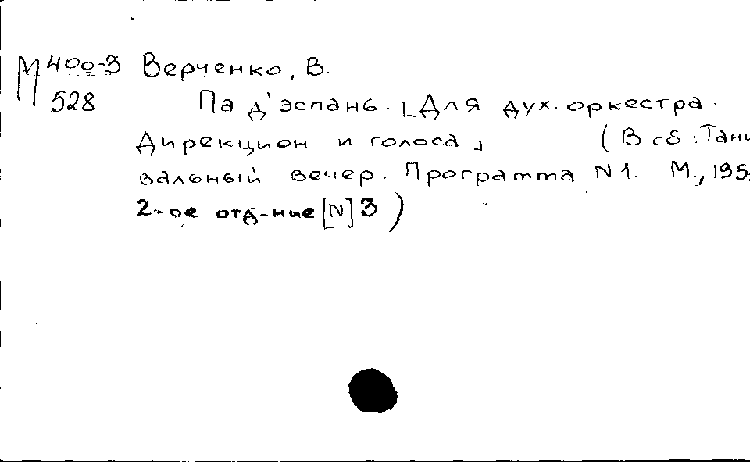 М 400-3 Верченко, В.
528 Па д'эспань. [Для дух. оркестра.
Дирекцион и голоса] (В сб.: Танц
вальный вечер. Программа N 1. М., 195
2-ое отд-ние [N] 3)